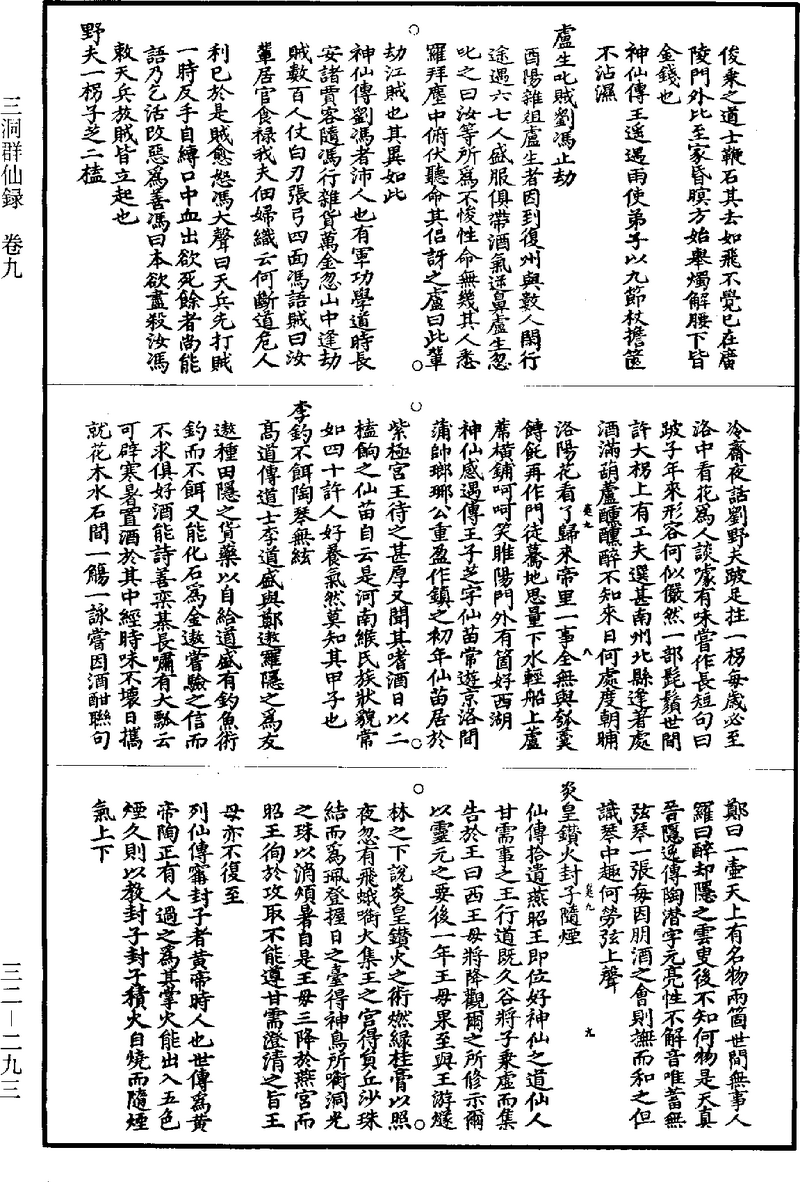 三洞群仙録　卷九
三二—二九三
俊乘之道士鞭石其去如飛不覺已在廣
陵門外比至家昏暝方始舉燭解腰下皆
金錢也
神仙傳王遥遇雨使弟子以九節杖擔篋
不沾濕
盧生叱賊劉馮止劫
酉陽雜俎盧生者因到復州與數人閑行
途遇六七人盛服俱帶酒氣逆鼻盧生忽
叱之曰汝等所爲不悛性命無幾其人悉
羅拜塵中俯伏聽命其侣訝之盧曰此輩
劫江賊也其異如此
神仙傳劉馮者沛人也有軍功學道時長
安諸賈客隨馮行雜貨萬金忽山中逢劫
賊數百人仗白刃張弓四面馮語賊曰汝
輩居官食禄我夫佃婦織云何斷道危人
利己於是賊愈怒馮大聲曰天兵先打賊
一時反手自縛口中血出欲死餘者尚能
語乃乞活改惡爲善馮曰本欲盡殺汝馮
敕天兵放賊皆立起也
野夫一柺子芝二榼
冷齋夜話劉野夫跛足拄一柺每歲必至
洛中看花爲人談噱有味嘗作長短句曰
跛子年來形容何似儼然一部髭鬚世間
許大柺上有工夫選甚南州北縣逢著處
酒滿葫蘆醺醺醉不知來日何處度朝晡
洛陽花看了歸來帝里一事全無與鈢羹
餺飥再作門徒驀地思量下水輕船上蘆
蓆橫鋪呵呵笑睢陽門外有箇好西湖
神仙感遇傳王子芝字仙苗常遊京洛間
蒲帥瑯瑯公重盈作鎮之初年仙苗居於
紫極宫王待之甚厚又聞其嗜酒日以二
榼餉之仙苗自云是河南緱氏族狀貌常
如四十許人好養氣然莫知其甲子也
李釣不餌陶琴無絃
髙道傳道士李道盛與鄭遨羅隱之爲友
遨種田隱之貨藥以自給道盛有釣魚術
釣而不餌又能化石爲金遨嘗驗之信而
不求俱好酒能詩善奕棊長嘯有大瓢云
可辟寒暑置酒於其中經時味不壞日攜
就花木水石間一觴一詠嘗因酒酣聯句
卷九　八
鄭曰一壺天上有名物兩箇世間無事人
羅曰醉却隱之雲叟後不知何物是天真
晉隱逸傳陶潜字元亮性不解音唯蓄無
弦琴一張每因朋酒之會則撫而和之但
識琴中趣何勞弦上聲
炎皇鑽火封子隨煙
卷九　九
仙傳拾遺燕昭王即位好神仙之道仙人
甘需事之王行道既久谷將子乘虛而集
告於王曰西王母將降觀爾之所修示爾
以靈元之要後一年王母果至與王游燧
林之下說炎皇鑽火之術燃緑桂膏以照
夜忽有飛蛾㗸火集王之宫得負丘沙珠
結而爲珮登握日之臺得神鳥所㗸洞光
之珠以消煩暑自是王母三降於燕宫而
昭王徇於攻取不能遵甘需澄清之旨王
母亦不復至
列仙傳甯封子者黄帝時人也世傳爲黄
帝陶正有人過之爲其掌火能出入五色
煙久則以教封子封子積火自燒而隨煙
氣上下